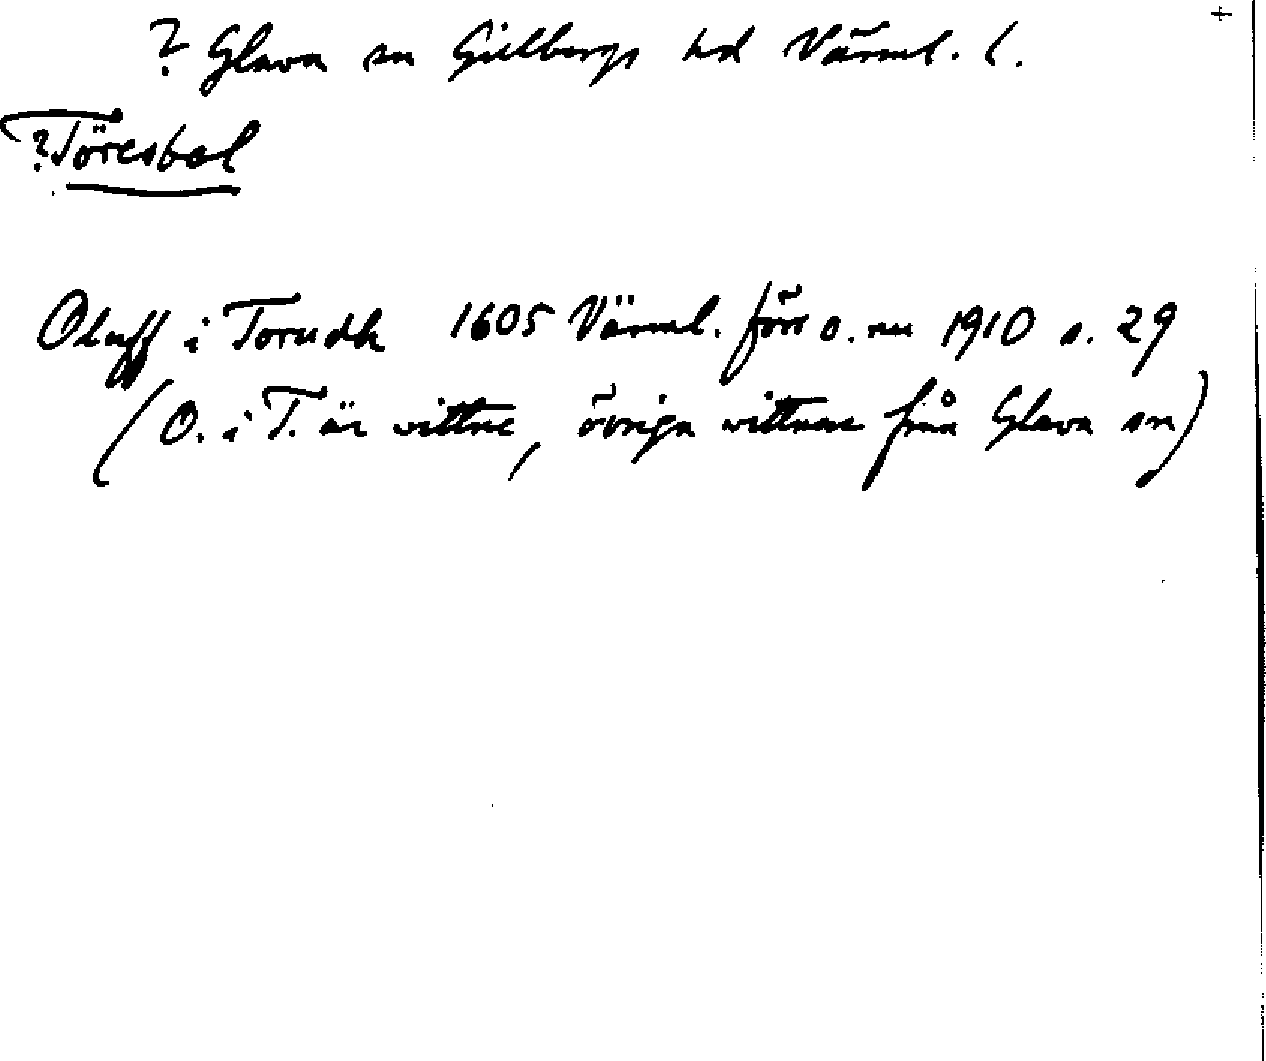 ? Glava sn Gillbergs hd Värml. l.
+
?Töresbol
Oluff i Torudh 1605 Värml. förr o. nu 1910 s. 29
(O. i T. är vittne, övriga vittnen från Glava sn)